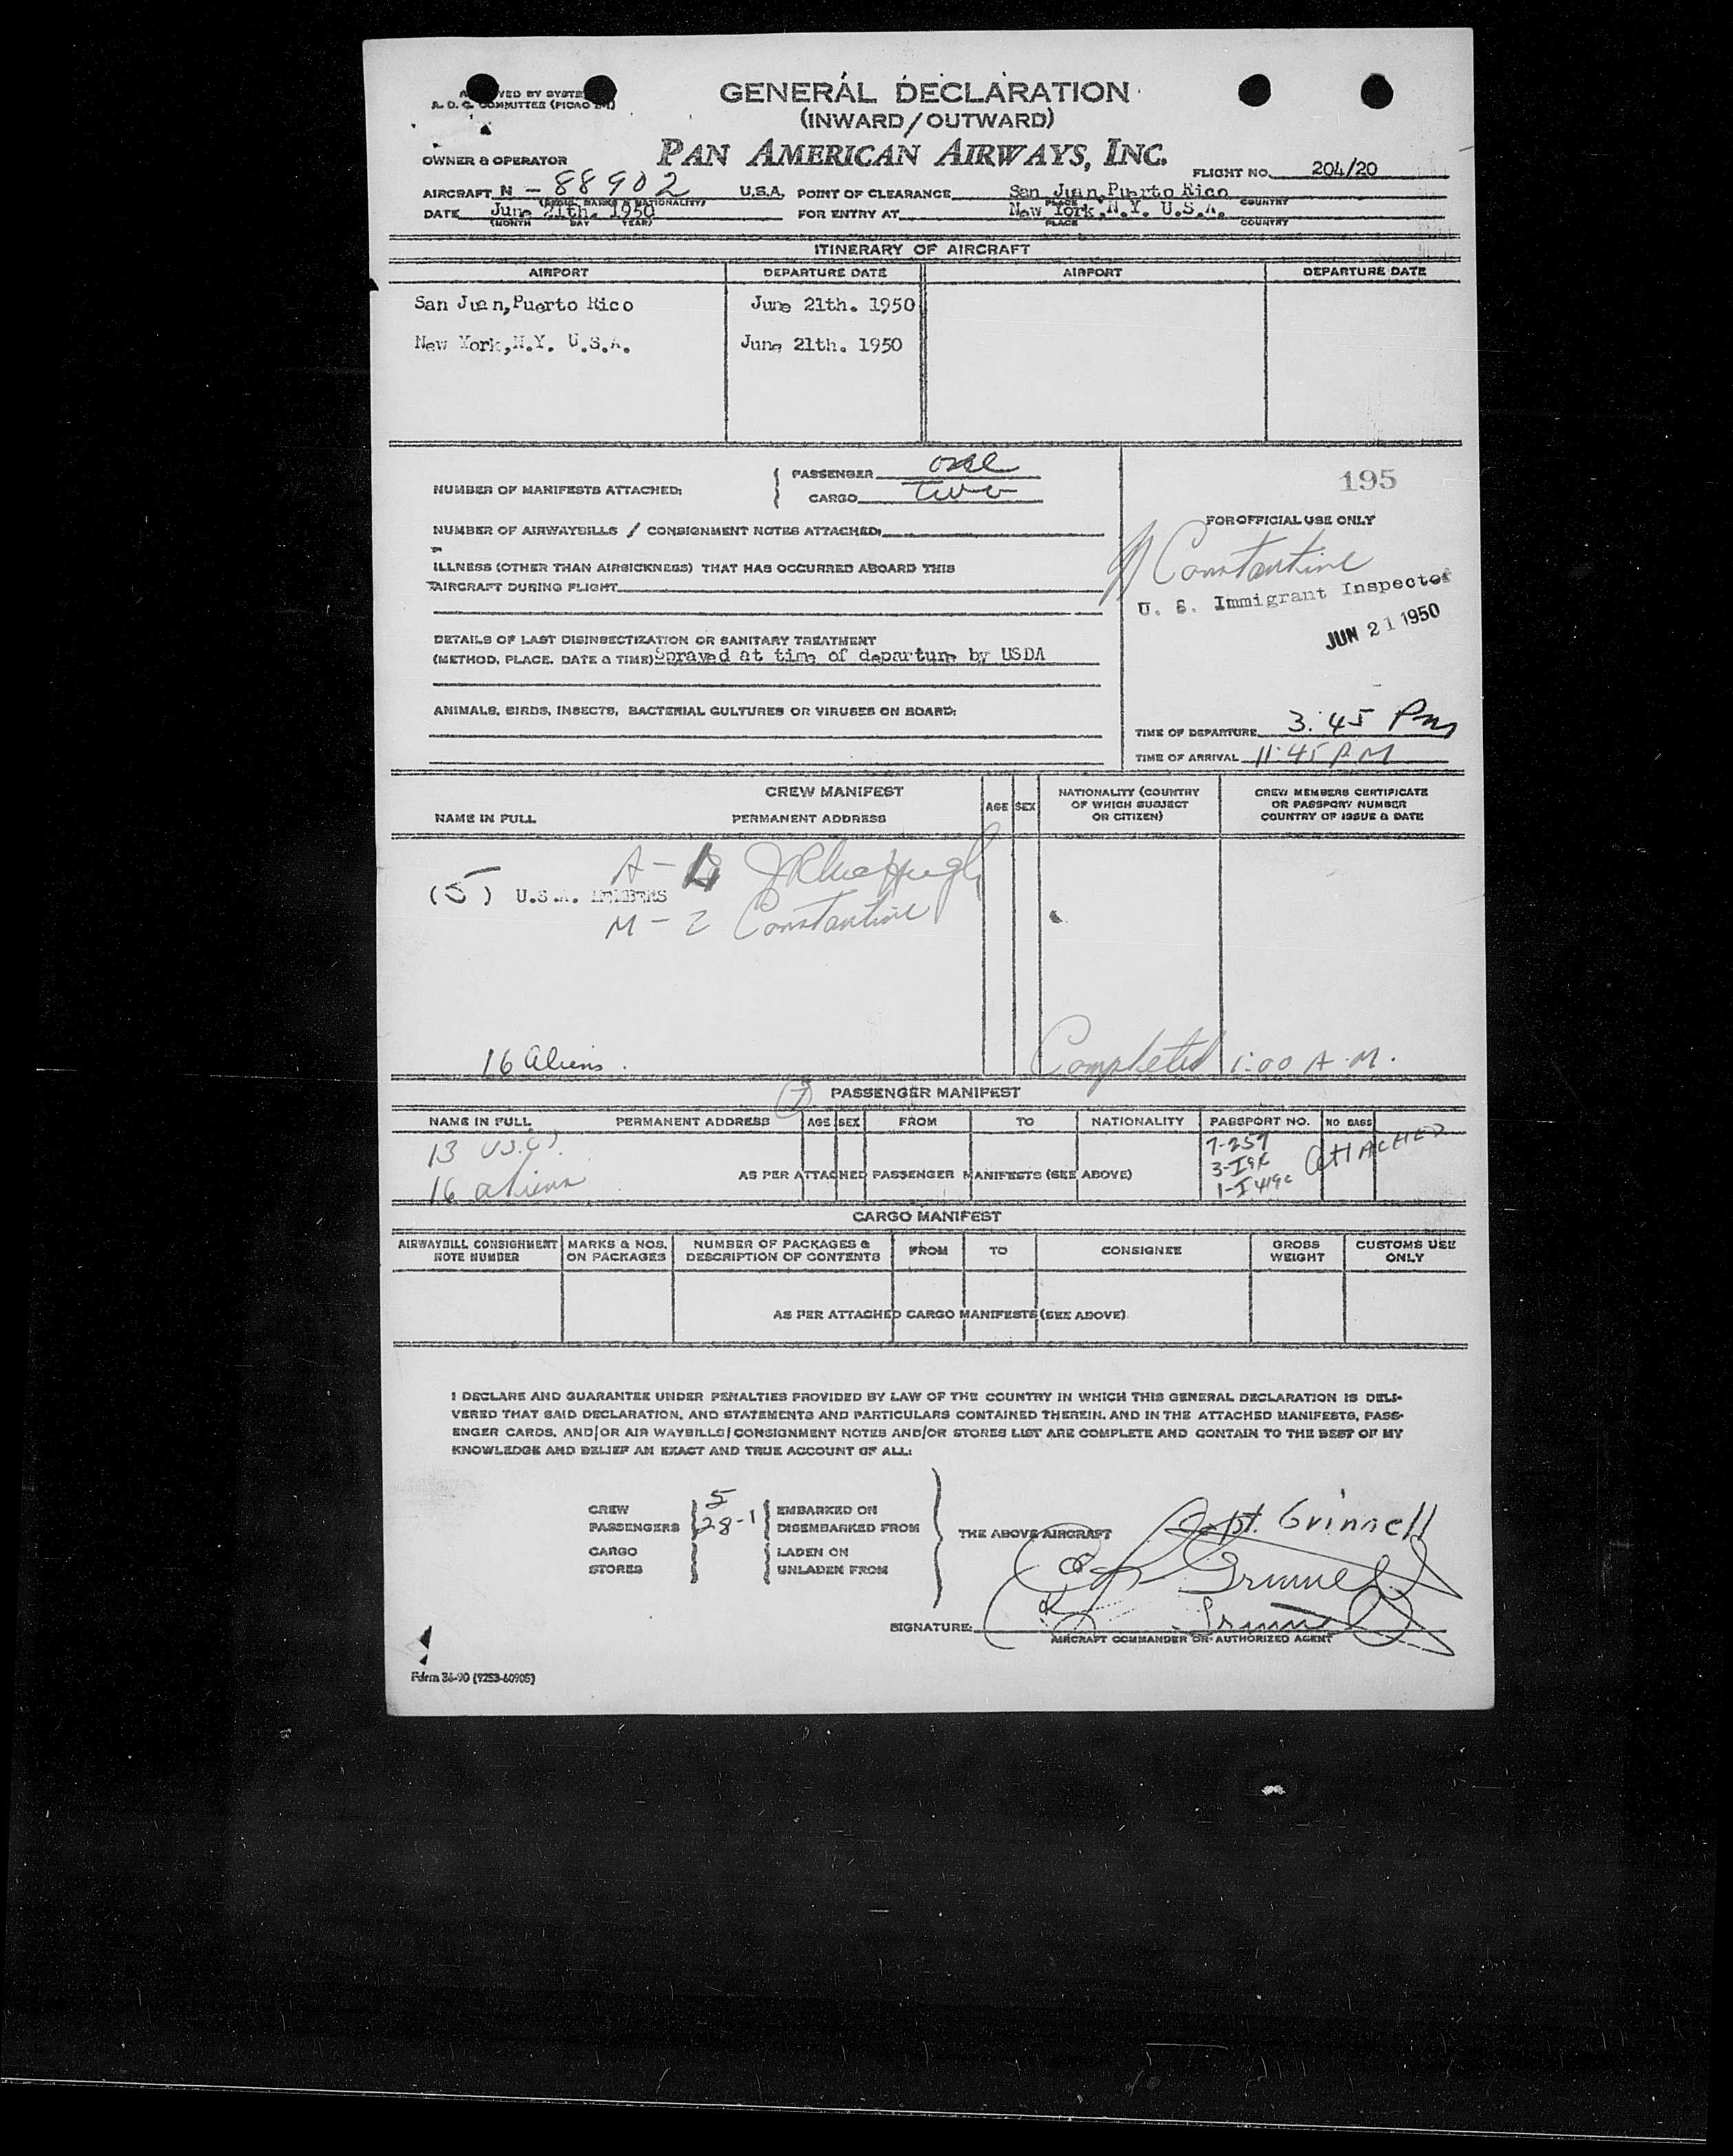 GENERAL DECLARATION
(INWARD/OUTWARD)
PAN AMERICAN AIRWAYS, INC.
A. D. C. COMMITTEE (PICAO
OWNER & OPERATOR
FLIGHT NO. 204/20
AIRCRAFT N - 88902 U.S.A. POINT OF CLEARANCE San Juan, Puerto Rico
PLACE COUNTRY
DATE June 21th. 1950 FOR ENTRY AT New York, N.Y. U.S.A.
(MONTH DAY YEAR) PLACE COUNTRY
ITINERARY OF AIRCRAFT
AIRPORT DEPARTURE DATE AIRPORT DEPARTURE DATE
San Juan, Puerto Rico June 21th. 1950
New York, N.Y. U.S.A. June 21th. 1950
NUMBER OF MANIFESTS ATTACHED: { PASSENGER one
CARGO two
195
NUMBER OF AIRWAYBILLS / CONSIGNMENT NOTES ATTACHED:
FOR OFFICIAL USE ONLY
Constantine
U. S. Immigrant Inspector
JUN 21 1950
ILLNESS (OTHER THAN AIRSICKNESS) THAT HAS OCCURRED ABOARD THIS
AIRCRAFT DURING FLIGHT
DETAILS OF LAST DISINSECTIZATION OR SANITARY TREATMENT
(METHOD, PLACE, DATE & TIME) Sprayed at time of departure by USDA
ANIMALS, BIRDS, INSECTS, BACTERIAL CULTURES OR VIRUSES ON BOARD:
TIME OF DEPARTURE 3:45 Pm
TIME OF ARRIVAL 11:45 P.M
CREW MANIFEST
NAME IN FULL PERMANENT ADDRESS AGE SEX NATIONALITY (COUNTRY OF WHICH SUBJECT OR CITIZEN) CREW MEMBERS CERTIFICATE OR PASSPORT NUMBER COUNTRY OF ISSUE & DATE
A - 4
(5) U.S.A. MEMBERS
M - 2 Constantine
16 aliens. Completed 1:00 A.M.
PASSENGER MANIFEST
NAME IN FULL PERMANENT ADDRESS AGE SEX FROM TO NATIONALITY PASSPORT NO. NO BAGS
13 U.S.C's.
16 aliens
7-257
AS PER ATTACHED PASSENGER MANIFESTS (SEE ABOVE)
ATTACHED
CARGO MANIFEST
AIRWAYBILL CONSIGNMENT NOTE NUMBER MARKS & NOS. ON PACKAGES NUMBER OF PACKAGES & DESCRIPTION OF CONTENTS FROM TO CONSIGNEE GROSS WEIGHT CUSTOMS USE ONLY
AS PER ATTACHED CARGO MANIFESTS (SEE ABOVE)
I DECLARE AND GUARANTEE UNDER PENALTIES PROVIDED BY LAW OF THE COUNTRY IN WHICH THIS GENERAL DECLARATION IS DELI-
VERED THAT SAID DECLARATION, AND STATEMENTS AND PARTICULARS CONTAINED THEREIN, AND IN THE ATTACHED MANIFESTS, PASS-
ENGER CARDS, AND/OR AIR WAYBILLS/CONSIGNMENT NOTES AND/OR STORES LIST ARE COMPLETE AND CONTAIN TO THE BEST OF MY
KNOWLEDGE AND BELIEF AN EXACT AND TRUE ACCOUNT OF ALL:
CREW 5 EMBARKED ON
PASSENGERS 28-1 DISEMBARKED FROM
CARGO LADEN ON
STORES UNLADEN FROM
THE ABOVE AIRCRAFT
Capt. Grinnell
Grinnell
SIGNATURE: Grinnell
AIRCRAFT COMMANDER OR AUTHORIZED AGENT
Form 36-90 (9253-60905)